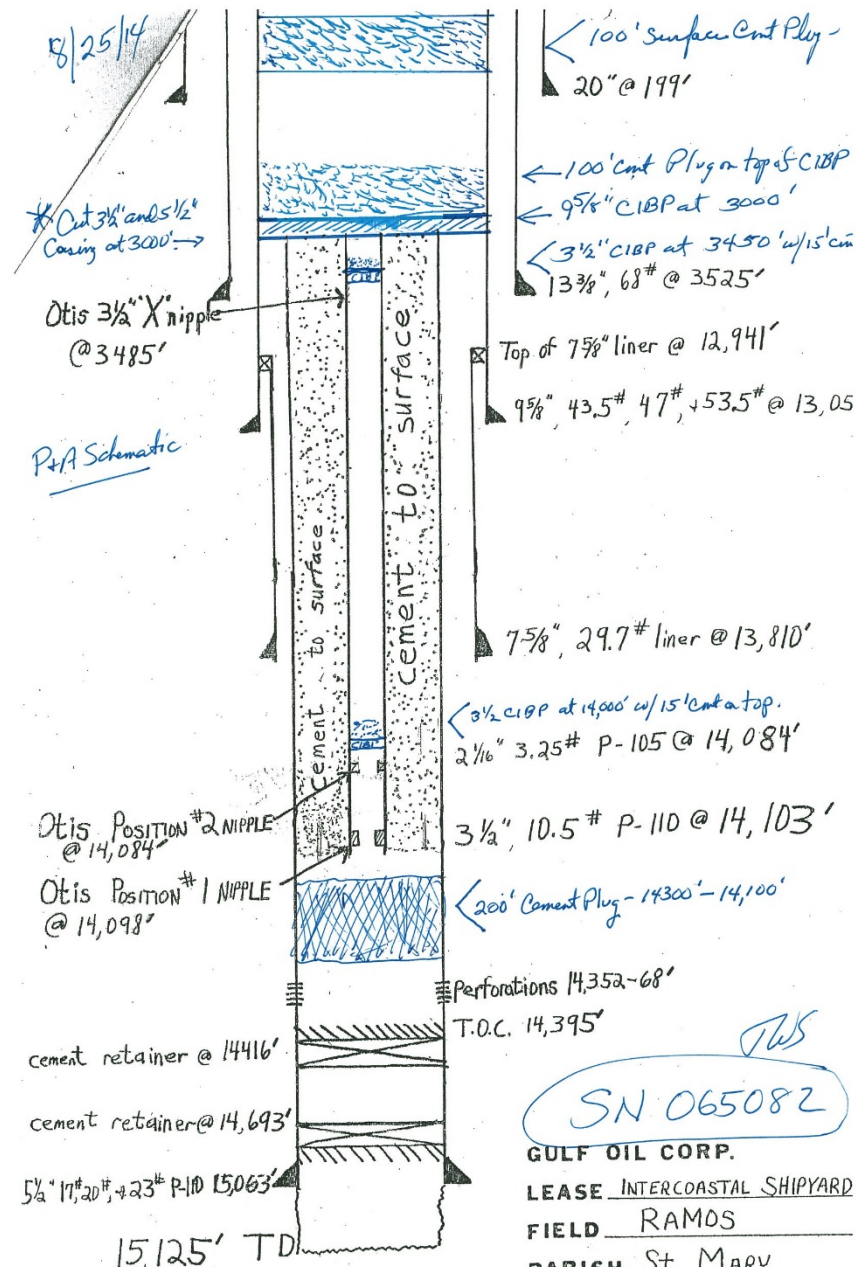 8/25/14
100' Surface Cmt Plug -
20" @ 199'
100' cmt Plug on top of CIBP
9 5/8" CIBP at 3000'
* Cut 3½" and 5½"
Casing at 3000' →
3½" CIBP at 3450' w/15' cm
13 3/8", 68# @ 3525'
CIBP
Otis 3½" "X" nipple
@ 3485'
Top of 7 5/8" liner @ 12,941'
9 5/8", 43.5#, 47#, +53.5# @ 13,05
P+A Schematic
cement to surface
cement to surface
7 5/8", 29.7# liner @ 13,810'
3½ CIBP at 14,000' w/15' cmt on top.
CIBP
2 1/16" 3.25# P-105 @ 14,084'
Otis POSITION #2 NIPPLE
@ 14,084'
3½", 10.5# P-110 @ 14,103'
Otis POSITION #1 NIPPLE
@ 14,098'
200' Cement Plug - 14300' - 14,100'
Perforations 14,352-68'
T.O.C. 14,395'
cement retainer @ 14416'
cement retainer @ 14,693'
SN 065082
GULF OIL CORP.
5½" 17#, 20#, + 23# P-110 15,063'
LEASE INTERCOASTAL SHIPYARD
FIELD RAMOS
15,125' TD
PARISH St. MARY